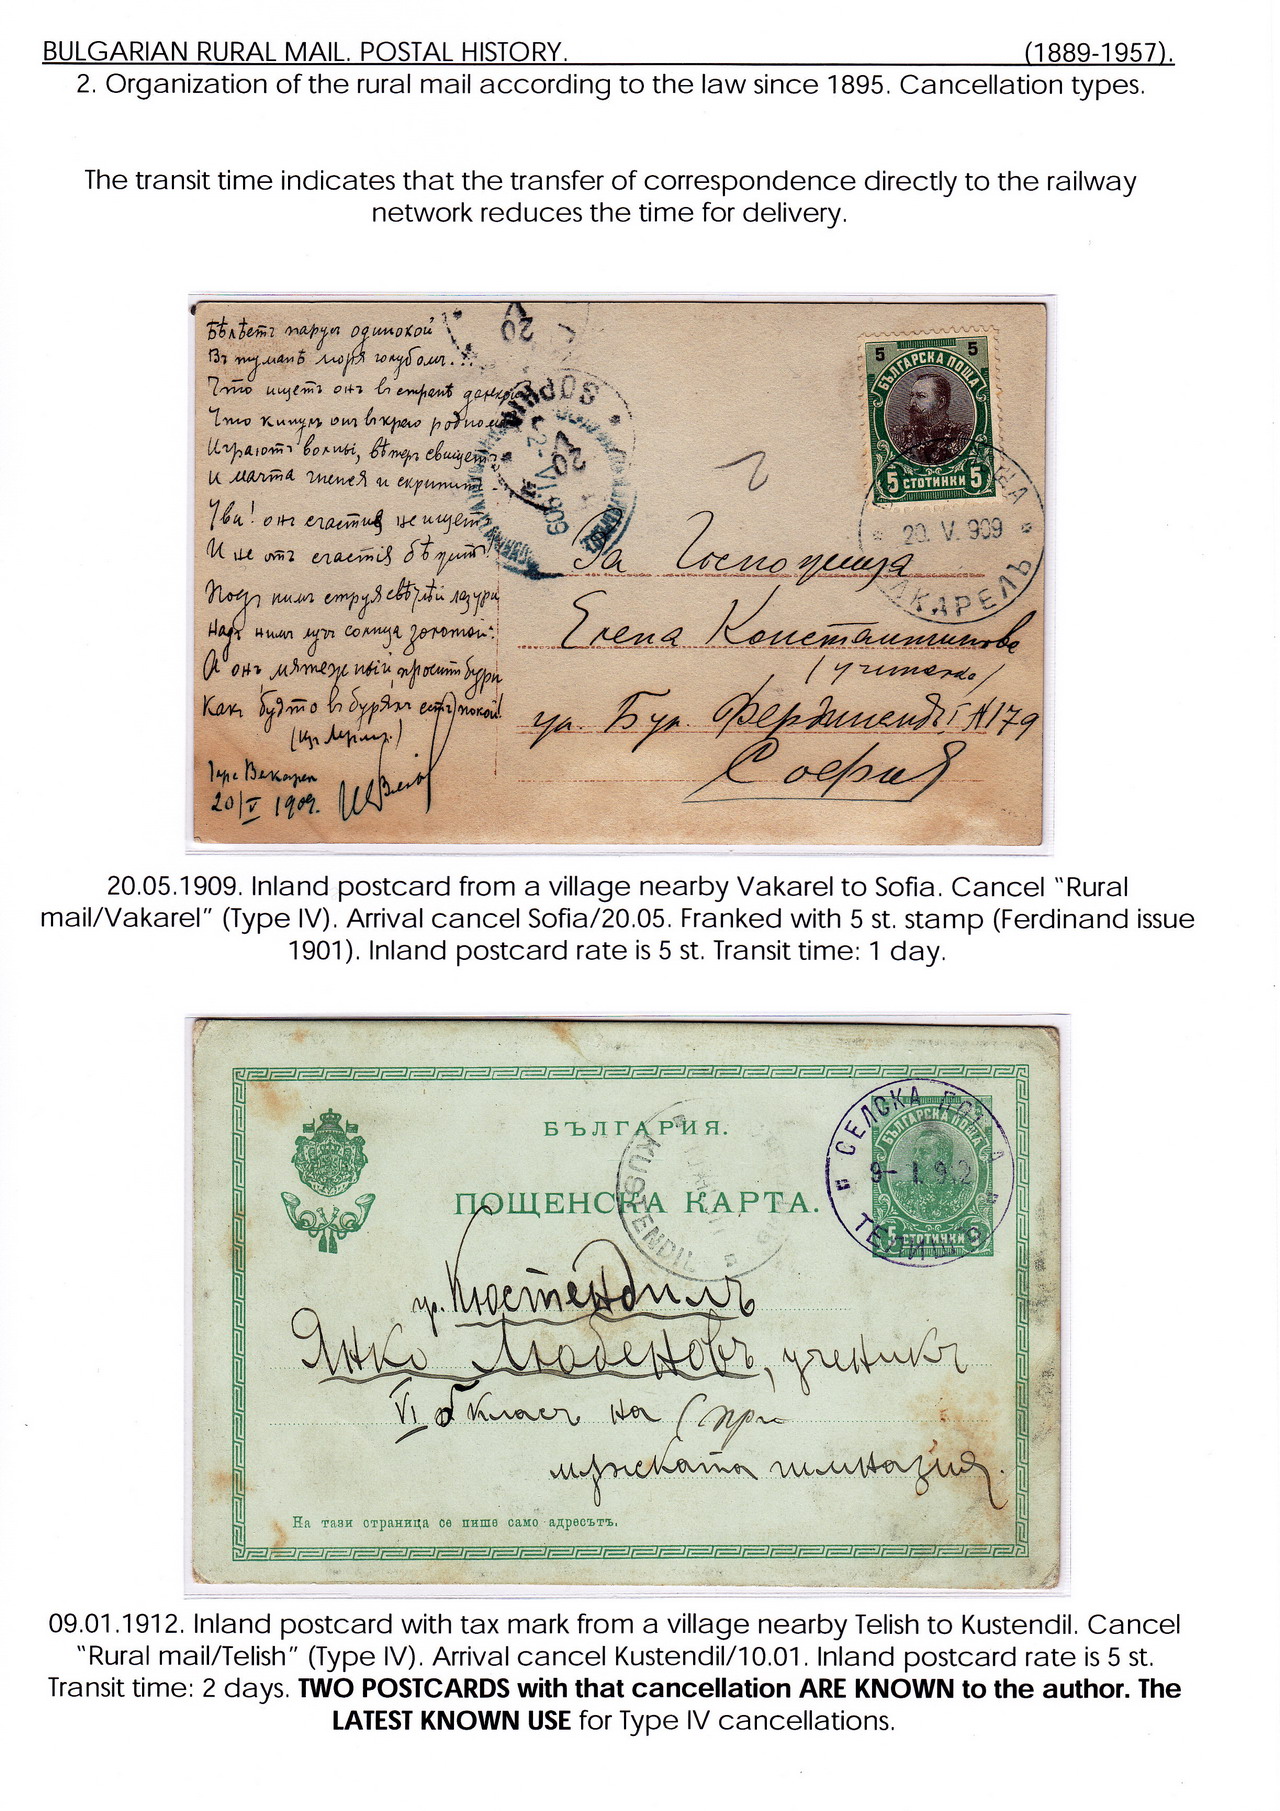 BULGARIAN RURAL MAIL. POSTAL HISTORY. (1889-1957).
2. Organization of the rural mail according to the law since 1895. Cancellation types.
The transit time indicates that the transfer of correspondence directly to the railway
network reduces the time for delivery.
Бѣлѣетъ парусъ одинокой
Въ туманѣ моря голубомъ...
Что ищетъ онъ въ странѣ далекой
Что кинулъ онъ въ краю родномъ
Играютъ волны, вѣтеръ свищетъ
И мачта гнется и скрипитъ
Увы! онъ счастия не ищетъ
И не отъ счастія бѣжитъ!
Подъ нимъ струя свѣтлѣй лазури
Надъ нимъ лучъ солнца золотой:
А онъ, мятежный, проситъ бури
Какъ будто въ буряхъ есть покой!
Гара Вакарел
20/V 1909.
SOPHIA
20
5 5
БЪЛГАРСКА ПОЩА
5 СТОТИНКИ 5
20. V. 909
ВАКАРЕЛЪ
За Госпожица
Елена Константинова
(учителка)
ул. Бул. Фердинандъ I № 179
София
20.05.1909. Inland postcard from a village nearby Vakarel to Sofia. Cancel “Rural
mail/Vakarel” (Type IV). Arrival cancel Sofia/20.05. Franked with 5 st. stamp (Ferdinand issue
1901). Inland postcard rate is 5 st. Transit time: 1 day.
БЪЛГАРИЯ.
ПОЩЕНСКА КАРТА.
KUSTENDIL
СЕЛСКА ПОЩА
9- I. 912
ТЕЛИШЪ
БЪЛГАРСКА ПОЩА
5 СТОТИНКИ
гр. Кюстендилъ
Янко Любеновъ, ученикъ
VI б класъ на (при
мѫжката гимназия.
На тази страница се пише само адресътъ.
09.01.1912. Inland postcard with tax mark from a village nearby Telish to Kustendil. Cancel
“Rural mail/Telish” (Type IV). Arrival cancel Kustendil/10.01. Inland postcard rate is 5 st.
Transit time: 2 days. TWO POSTCARDS with that cancellation ARE KNOWN to the author. The
LATEST KNOWN USE for Type IV cancellations.